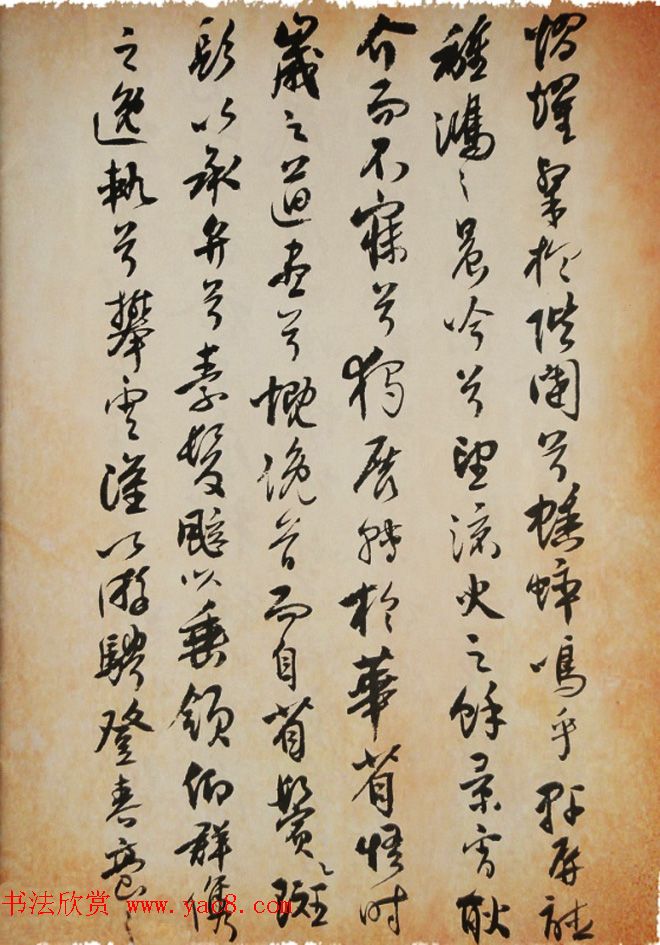 熠燿粲於階闥兮蟋蟀鳴乎軒屏聽
離鴻之晨吟兮望流火之餘景宵耿
介而不寐兮獨展轉於華省悟時
歲之遒盡兮慨俛首而自省鬢斑
髟以承弁兮素髮颯以垂領仰群儁
之逸軌兮攀雲漢以游騁登春臺之
书法欣赏 www.yac8.com